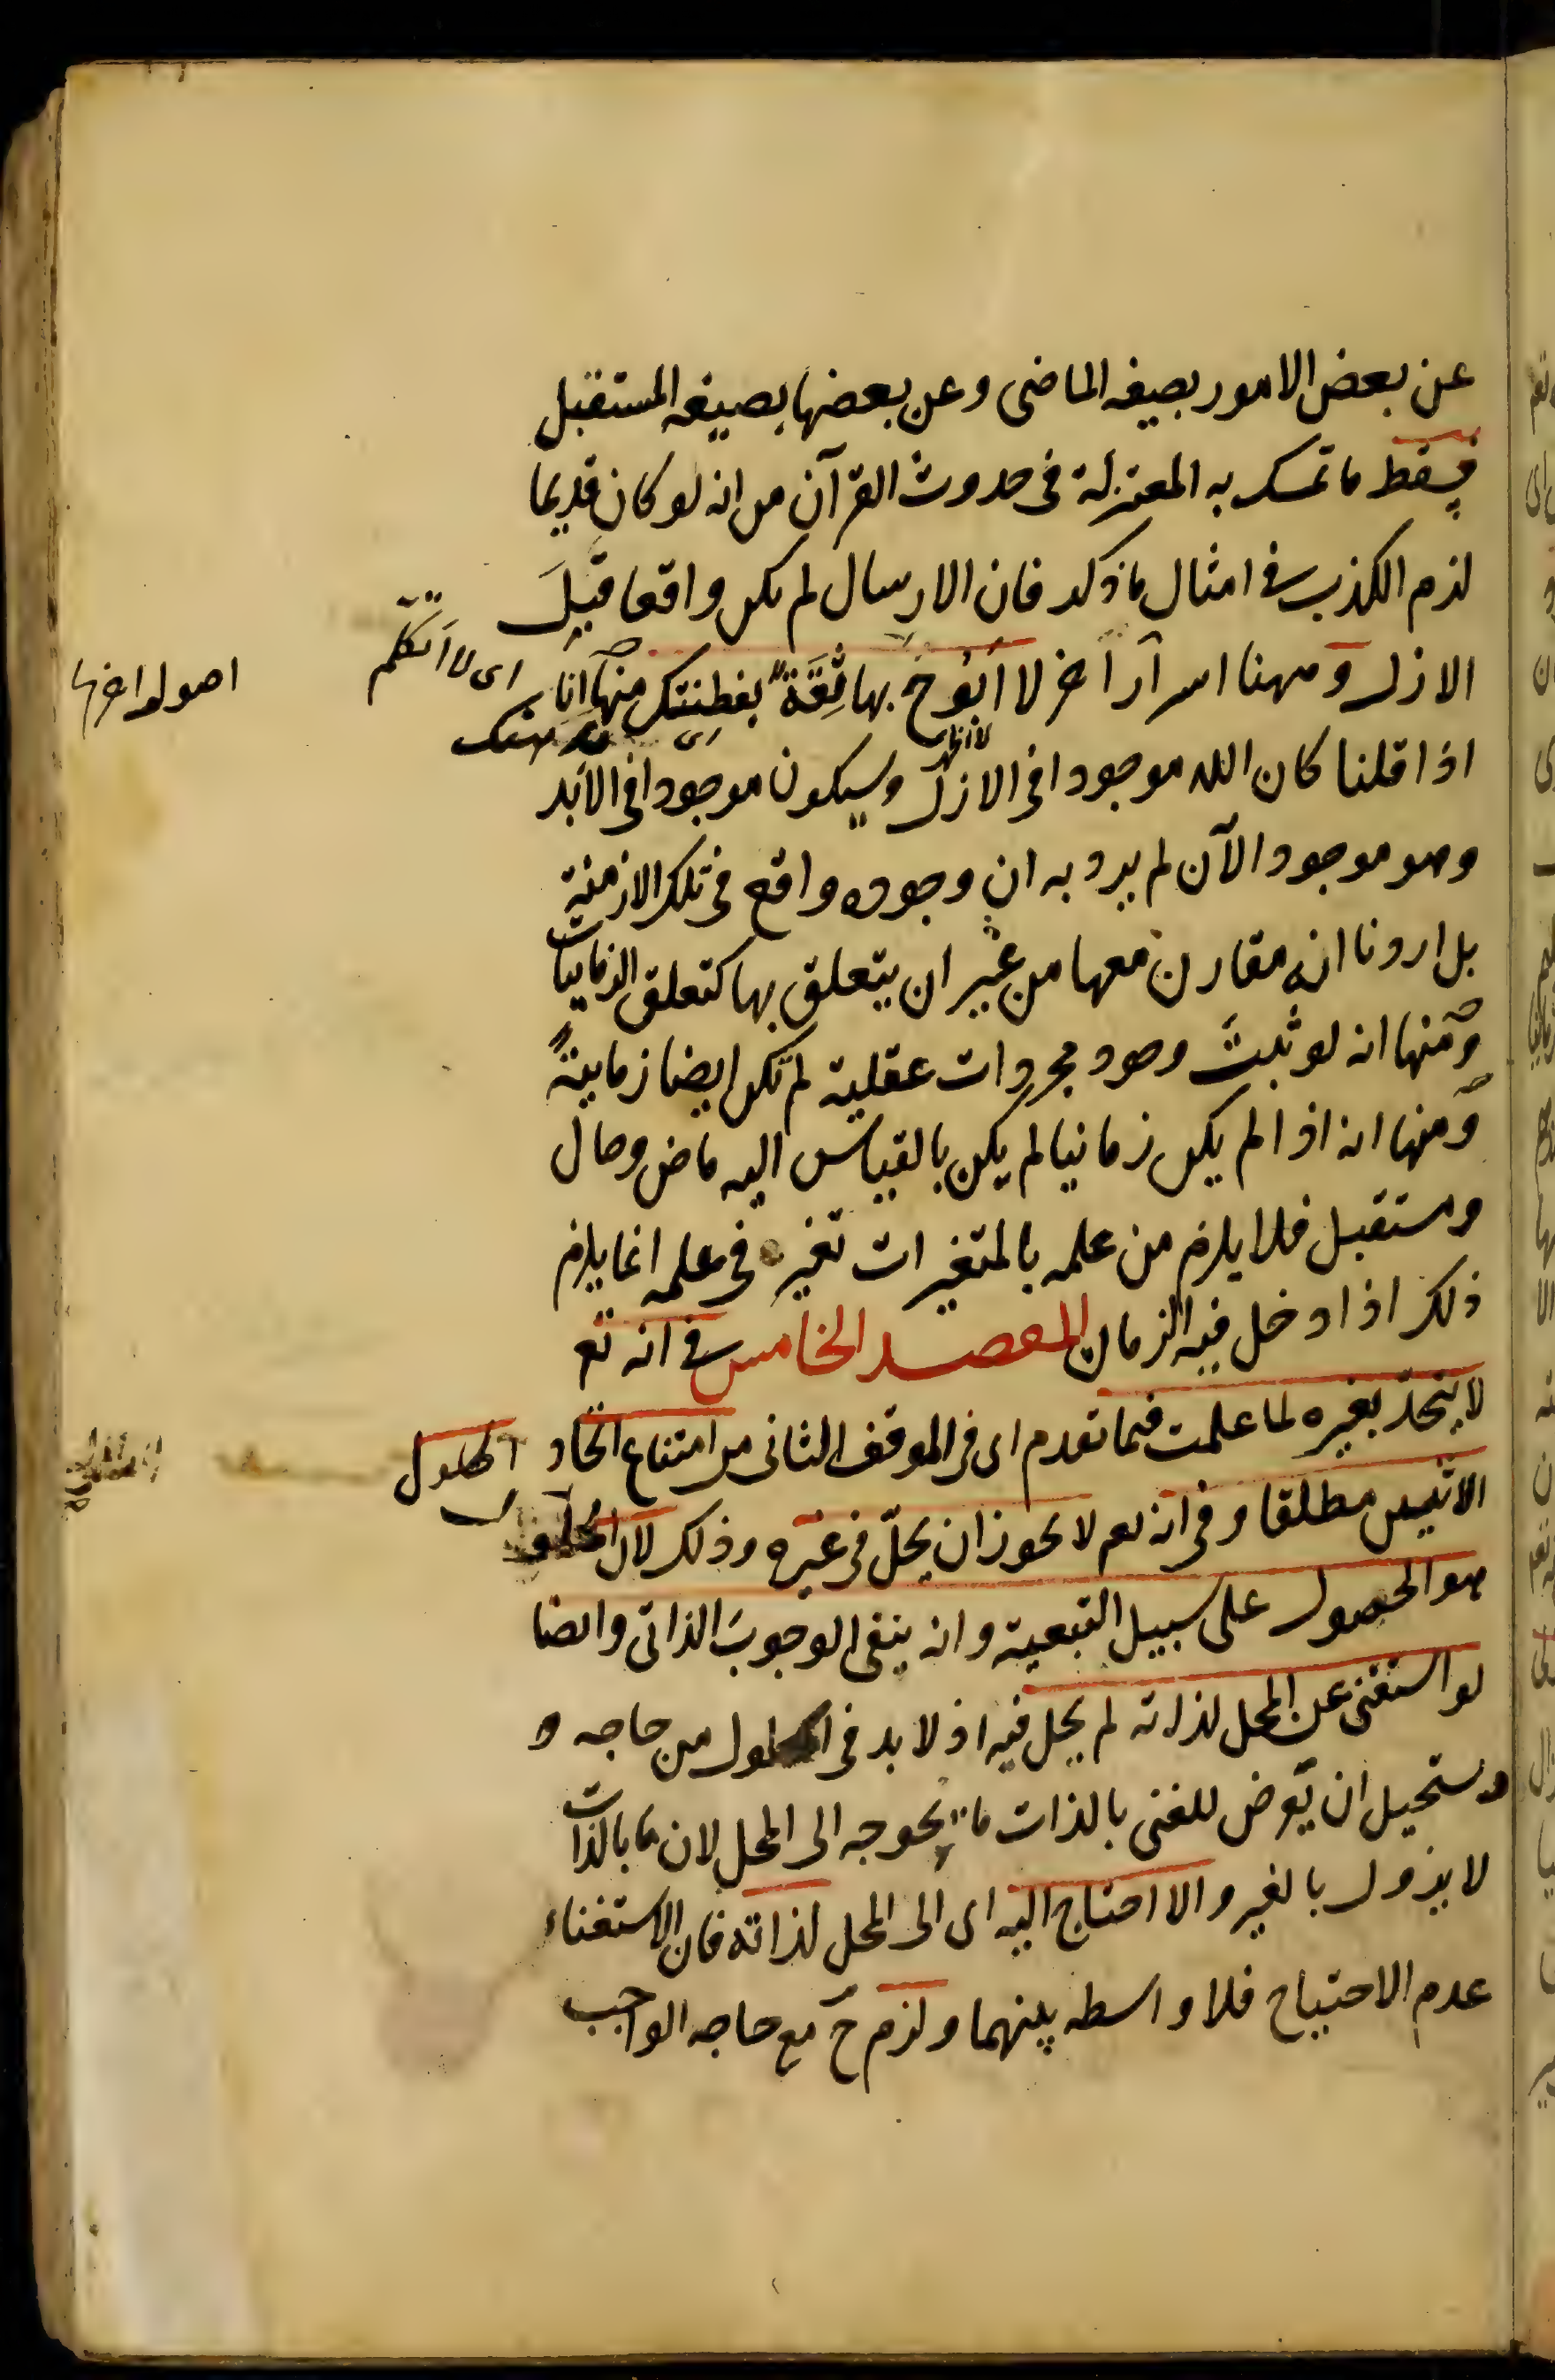 عن بعض الامور بصيغه الماضى وعن بعضها بصيغه المستقبل
فسقط ما تمسك به المعتزلة فى حدوث القرآن من انه لو كان قديما
لزم الكذب فى امثال ما ذكر فان الارسال لم يكن واقعا قبل
الازل وههنا اسرار اخر لا ابوح بها ثقة بفطنتك منها انا
اى لا اتكلم
لا اظهر
اذا قلنا كان الله موجودا فى الازل وسيكون موجودا فى الابد
وهو موجود الآن لم يرد به ان وجوده واقع فى تلك الازمنة
بل اردنا انه مقارن معها من غير ان يتعلق بها كتعلق الزمانيات
ومنها انه لو ثبت وجود مجردات عقلية لم تكن ايضا زمانية
ومنها انه اذا لم يكن زمانيا لم يكن بالقياس اليه ماض وحال
ومستقبل فلا يلزم من علمه بالمتغيرات تغير فى علمه انما يلزم
ذلك اذا دخل فيه الزمان المقصد الخامس فى انه تع
لا يتحد بغيره لما علمت فيما تقدم اى فى الموقف الثانى من امتناع اتحاد
الحلول
الاثنين مطلقا وفى انه تعم لا يجوز ان يحل فى غيره وذلك لان الحلول
هو الحصول على سبيل التبعية وانه ينفى الوجوب الذاتى وايضا
لو استغنى عن المحل لذاته لم يحل فيه اذ لا بد فى الحلول من حاجه و
ويستحيل ان يعرض للغنى بالذات ما يحوجه الى المحل لان ما بالذات
لا يزول بالغير والا احتاج اليه اى الى المحل لذاته فان الاستغناء
عدم الاحتياج فلا واسطه بينهما ولزم ح مع حاجه الواجب